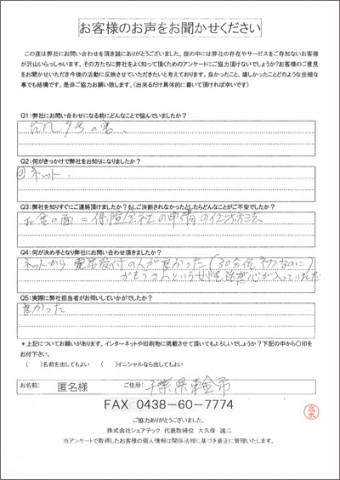 お客様のお声をお聞かせください
この度は弊社にお問い合わせを頂き誠にありがとうございました。世の中には弊社の存在やサービスをご存知ないお客様
が沢山いらっしゃいます。その方たちに弊社をよく知って頂くためのアンケートにご協力頂けないでしょうか?お客様のご意見
をお聞かせいただき今後の活動に反映させていただきたいと考えております。良かったこと、嬉しかったことどのような些細な
事でも結構です。是非ご協力お願い致します。(出来るだけ具体的に書いて頂ければ幸いです)
Q1:弊社にお問い合わせになる前にどんなことで悩んでいましたか?
台風
の害
Q2:何がきっかけで弊社をお知りになりましたか?
ネット
Q3:弊社を知りすぐにご連絡頂けましたか?もしご決断されなかったとしたらどんなことがご不安でしたか?
お金の面=保険会社の申請の仕方方法
Q4:何が決め手となり弊社にお問い合わせ頂きましたか?
ネットから 電話受付の人が良かった(30分位
という女性
が入っていました
Q5:実際に弊社担当者がお伺いしていかがでしたか?
良かった
*上記についてお願いです。インターネットや印刷物に掲載させて頂いてもよろしいでしょうか?下記の中から〇印をお付下さい。
( )名前を出してもよい ( )イニシャルなら出してもよい
お名前: 匿名様 ご住所: 千葉県東金市
FAX 0438-60-7774
ご協力ありがとうございました。
株式会社シェアテック 代表取締役 大久保 誠二
当アンケートで取得したお客様の個人情報は関係法規に基づき厳正に管理いたします。